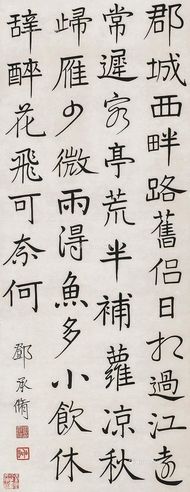 郡城西畔路舊侶日相過江遠
常遲客亭荒半補蘿凉秋
㱕雁少微雨淂魚多小飲休
辭醉花飛可奈何
鄧承脩